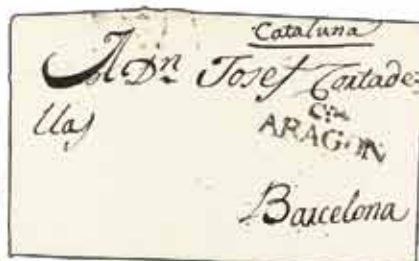 Cataluna
A Dn Josef Tortade=
llas
ARAGON
Barcelona